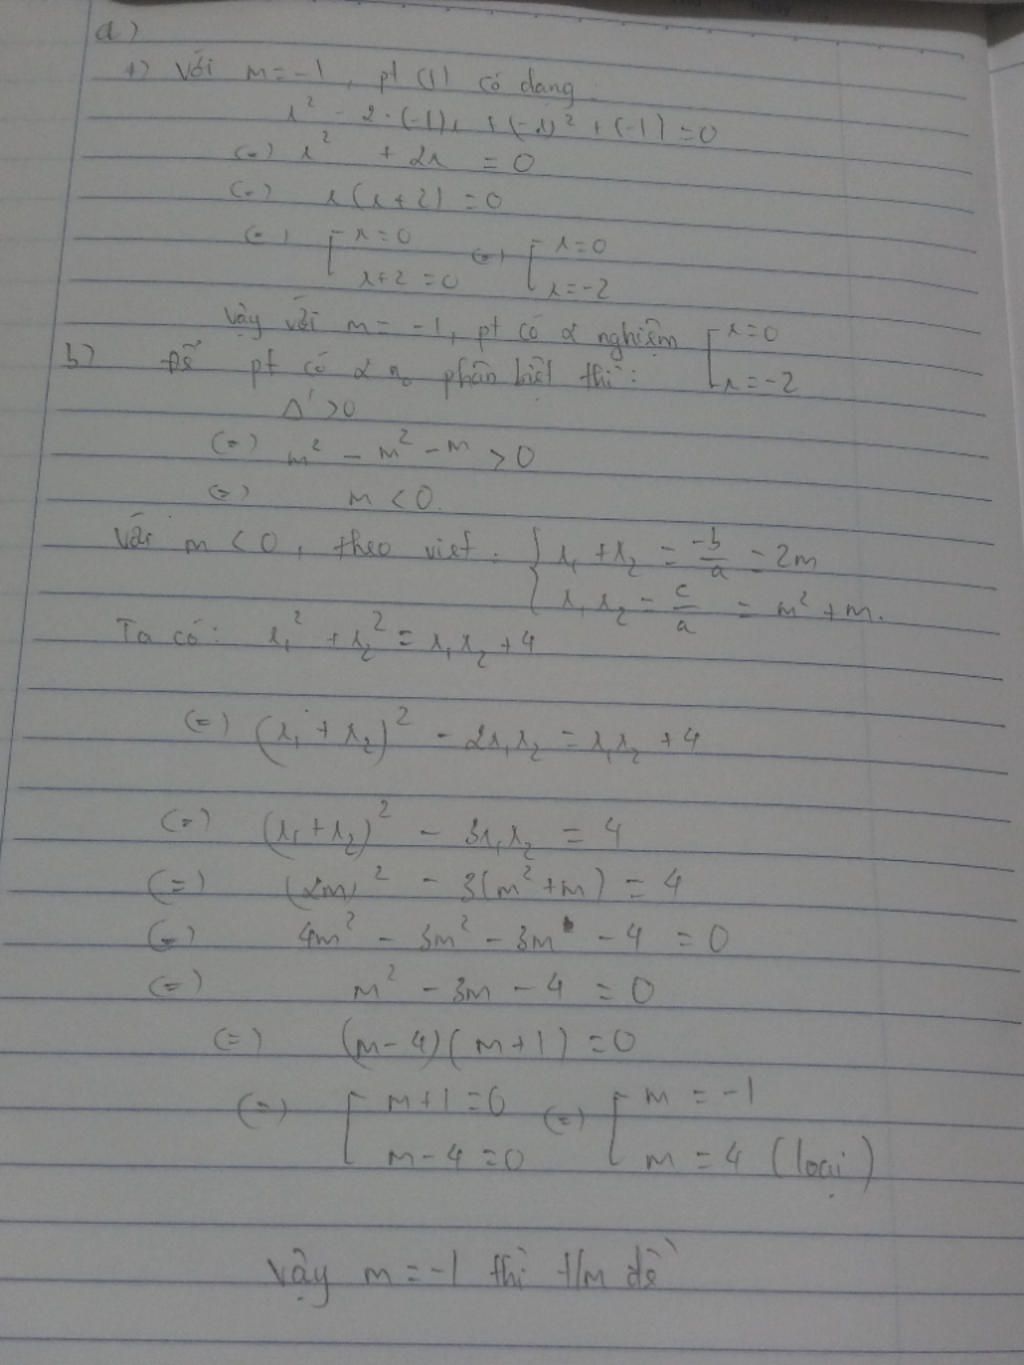 a)
+) Với m = -1, pt (1) có dạng
x² - 2.(-1)x + (-1)² + (-1) = 0
(=) x² + 2x = 0
(=) x(x+2) = 0
(=) [ x = 0 (=) [ x = 0
x+2 = 0 x = -2
Vậy với m = -1, pt có 2 nghiệm [ x = 0
x = -2
b) Để pt có 2 n₀ phân biệt thì:
Δ' > 0
(=) m² - m² - m > 0
(=) m < 0.
Với m < 0, theo viet: { x₁ + x₂ = -b/a = 2m
x₁x₂ = c/a = m² + m.
Ta có: x₁² + x₂² = x₁x₂ + 4
(=) (x₁ + x₂)² - 2x₁x₂ = x₁x₂ + 4
(=) (x₁ + x₂)² - 3x₁x₂ = 4
(=) (2m)² - 3(m² + m) = 4
(=) 4m² - 3m² - 3m - 4 = 0
(=) m² - 3m - 4 = 0
(=) (m - 4)(m + 1) = 0
(=) [ m + 1 = 0 (=) [ m = -1
m - 4 = 0 m = 4 (loại)
Vậy m = -1 thì t/m đề